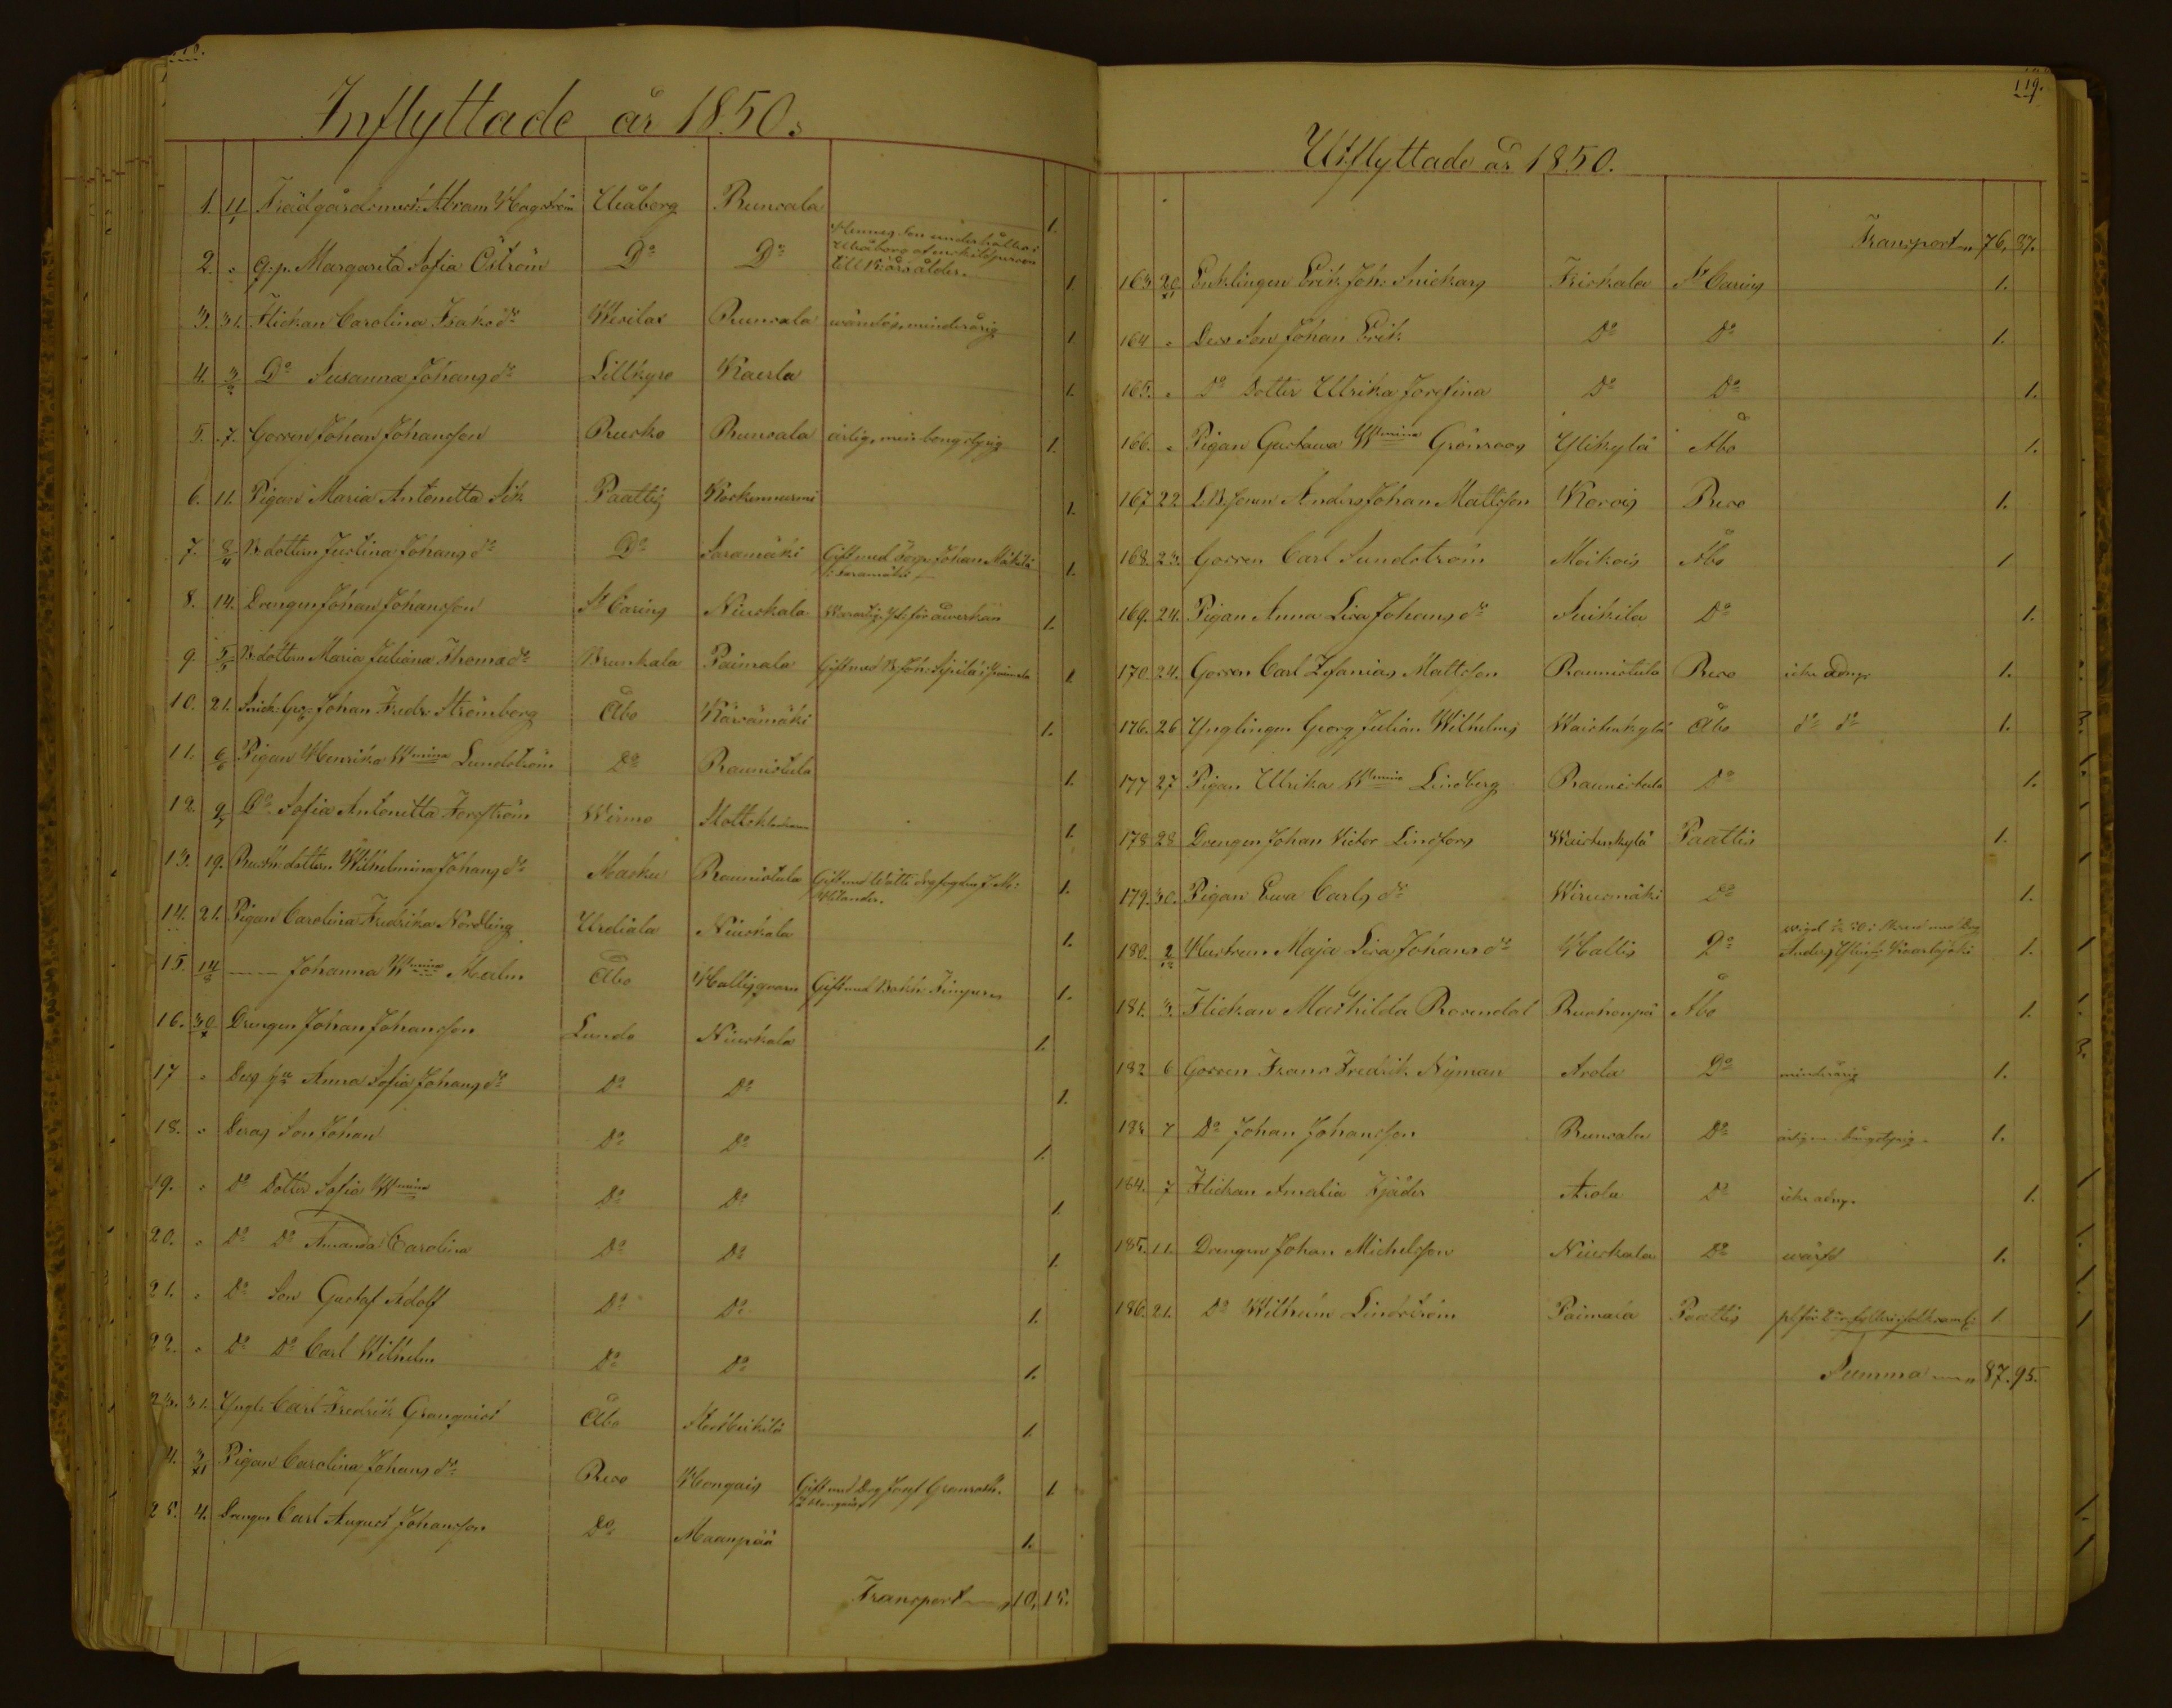 Inflyttade år 1850.
1. 11/1 Trädgårdsmäst: Abram Hagström Uleåborg Runsala 1.
2. " Q:p. Margareta Sofia Öström Do Do Hennes Son underhålles i Uleåborg af enskild person till 15 års ålder. 1.
3. 31. Flickan Carolina Isaksdr Wesilax Runsala wärnlös, minderårig 1.
4. 3/2 Do Susanna Johansdr Lillkyro Kaerla 1.
5. 7. Gossen Johan Johansson Rusko Runsala 1.
6. 11. Pigan Maria Antonetta Paattis Koskennurmi 1.
7. B:dottern Justina Johansdr Do Saramäki Gift med Johan Mäkilä i Saramäki 1.
8. 14. Drengen Johan Johansson St Carins Niuskala för åwerkan 1.
9. B:dottern Maria Juliana Thomasdr Brunkala Paimala Gift med B. Joh: Sipilä i Paimala 1.
10. 21. Snick: Ges: Johan Fredr Strömberg Åbo Räwämäki 1.
11. 6/6 Pigan Henrika Wmina Lundström Do Raunistula 1.
12. 9/7 Do Sofia Antonetta Forsström Wirmo 1.
13. 19. Rusth:dottern Wilhelmina Johansdr Masku Raunistula Gift med 1.
14. 21. Pigan Carolina Fredrika Nordling Urdiala Niuskala 1.
15. 14/9 —— Johanna Wmina Malm Åbo Hallisqvarn Gift med 1.
16. 30/X Drengen Johan Johansson Lundo Niuskala 1.
17 " Dess hu Anna Sofia Johansdr Do Do 1.
18. " Deras Son Johan Do Do 1.
19. " Do Dotter Sofia Wmina Do Do 1.
20. " Do Do Amanda Carolina Do Do 1.
21. " Do Son Gustaf Adolf Do Do 1.
22. " Do Do Carl Wilhelm Do Do 1.
23. 31. Yngl: Carl Fredrik Granqvist Åbo 1.
4. 3/XI Pigan Carolina Johansdr Reso Kongais Gift med Drg Josef Grönroth 1.
25. 4. Drengen Carl August Johansson Do Maanpää 1.
Transport 10. 15.
119.
Utflyttade år 1850.
Transport 76. 87.
163 20/XI Enklingen Erik Joh: Snickars Friskala St Carins 1.
164 " Dess Son Johan Erik Do Do 1.
165. " Do Dotter Ulrika Josefina Do Do 1.
166. " Pigan Gustawa Wmina Grönroos Ylikylä Åbo 1.
167 22. Anders Johan Mattsson Korois Reso 1.
168. 23. Gossen Carl Sundström Moikois Åbo 1
169. 24. Pigan Anna Lisa Johansdr Suikila Do 1.
170. 24. Gossen Carl Zefanias Mattsson Raunistula Reso icke admr 1.
176. 26 Ynglingen Georg Julian Wilhelms Waistenkylä Åbo do do 1.
177 27 Pigan Ulrika Wmina Lindberg Raunistula Do 1.
178 28 Drengen Johan Victor Lindfors Waistenkylä Paattis 1.
179. 30. Pigan Ewa Carlsdr Wirusmäki Do 1.
180. 2/12 Hustrun Maja Lisa Johansdr Hallis Do 1.
181. 3. Flickan Mathilda Rosendal Ruohonpä Åbo 1.
182 6 Gossen Frans Fredrik Nyman Arola Do minderårig 1.
183 7 Do Johan Johansson Runsala Do 1.
184. 7 Flickan Amalia Fjäder Arola Do icke adm. 1.
185. 11. Drengen Johan Michelsson Niuskala Do 1.
186. 21. Do Wilhelm Lindström Paimala Paattis 1
Summa 87. 95.